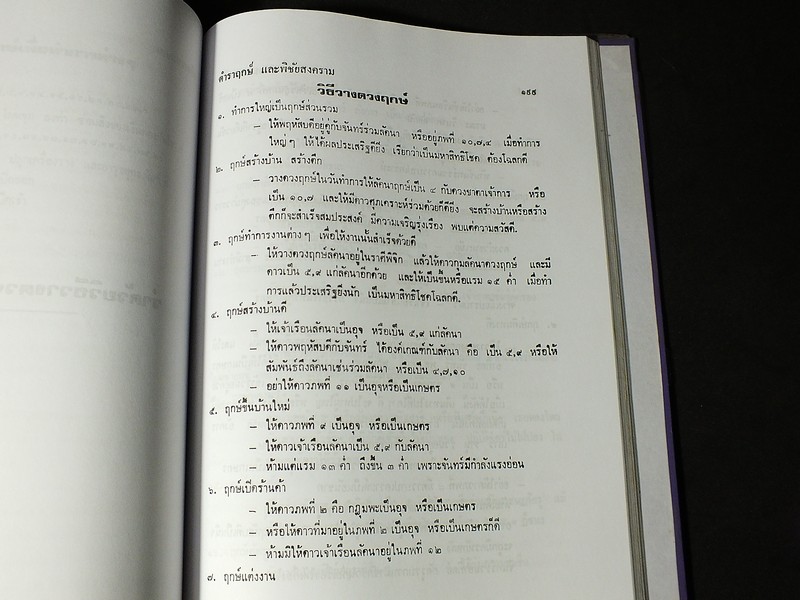 ตำราฤกษ์ และพิชัยสงคราม
๑๙๕
วิธีวางดวงฤกษ์
๑. ทำการใหญ่เป็นฤกษ์ส่วนรวม
– ให้พฤหัสบดีอยู่คู่กับจันทร์ร่วมลัคนา หรืออยู่ภพที่ ๑๐,๗,๔ เมื่อทำการ
ใหญ่ๆ ให้ได้ผลประเสริฐดียิ่ง เรียกว่าเป็นมหาสิทธิโชค ต้องโฉลกดี
๒. ฤกษ์สร้างบ้าน สร้างตึก
– วางดวงฤกษ์ในวันทำการให้ลัคนาฤกษ์เป็น ๔ กับดวงชาตาเจ้าการ หรือ
เป็น ๑๐,๗ และให้มีดาวศุภเคราะห์ร่วมด้วยก็ดียิ่ง จะสร้างบ้านหรือสร้าง
ตึกก็จะสำเร็จสมประสงค์ มีความเจริญรุ่งเรือง พบแต่ความสวัสดี.
๓. ฤกษ์ทำการงานต่างๆ เพื่อให้งานนั้นสำเร็จด้วยดี
– ให้วางดวงฤกษ์ลัคนาอยู่ในราศีพิจิก แล้วให้ดาวกุมลัคนาดวงฤกษ์ และมี
ดาวเป็น ๕,๙ แก่ลัคนาอีกด้วย และให้เป็นขึ้นหรือแรม ๑๕ ค่ำ เมื่อทำ
การแล้วประเสริฐยิ่งนัก เป็นมหาสิทธิโชคโฉลกดี.
๔. ฤกษ์สร้างบ้านดี
– ให้เจ้าเรือนลัคนาเป็นอุจ หรือเป็น ๕,๙ แก่ลัคนา
– ให้ดาวพฤหัสบดีกับจันทร์ ได้องค์เกณฑ์กับลัคนา คือ เป็น ๕,๙ หรือให้
สัมพันธ์ถึงลัคนาเช่นร่วมลัคนา หรือเป็น ๔,๗,๑๐
– อย่าให้ดาวภพที่ ๑๑ เป็นอุจหรือเป็นเกษตร
๕. ฤกษ์ขึ้นบ้านใหม่
– ให้ดาวภพที่ ๙ เป็นอุจ หรือเป็นเกษตร
– ให้ดาวเจ้าเรือนลัคนาเป็น ๕,๙ กับลัคนา
– ห้ามแต่แรม ๑๓ ค่ำ ถึงขึ้น ๓ ค่ำ เพราะจันทร์มีกำลังแรงอ่อน
๖. ฤกษ์เปิดร้านค้า
– ให้ดาวภพที่ ๒ คือ กฎุมพะเป็นอุจ หรือเป็นเกษตร
– หรือให้ดาวที่มาอยู่ในภพที่ ๒ เป็นอุจ หรือเป็นเกษตรก็ดี
– ห้ามมิให้ดาวเจ้าเรือนลัคนาอยู่ในภพที่ ๑๒
๗. ฤกษ์แต่งงาน